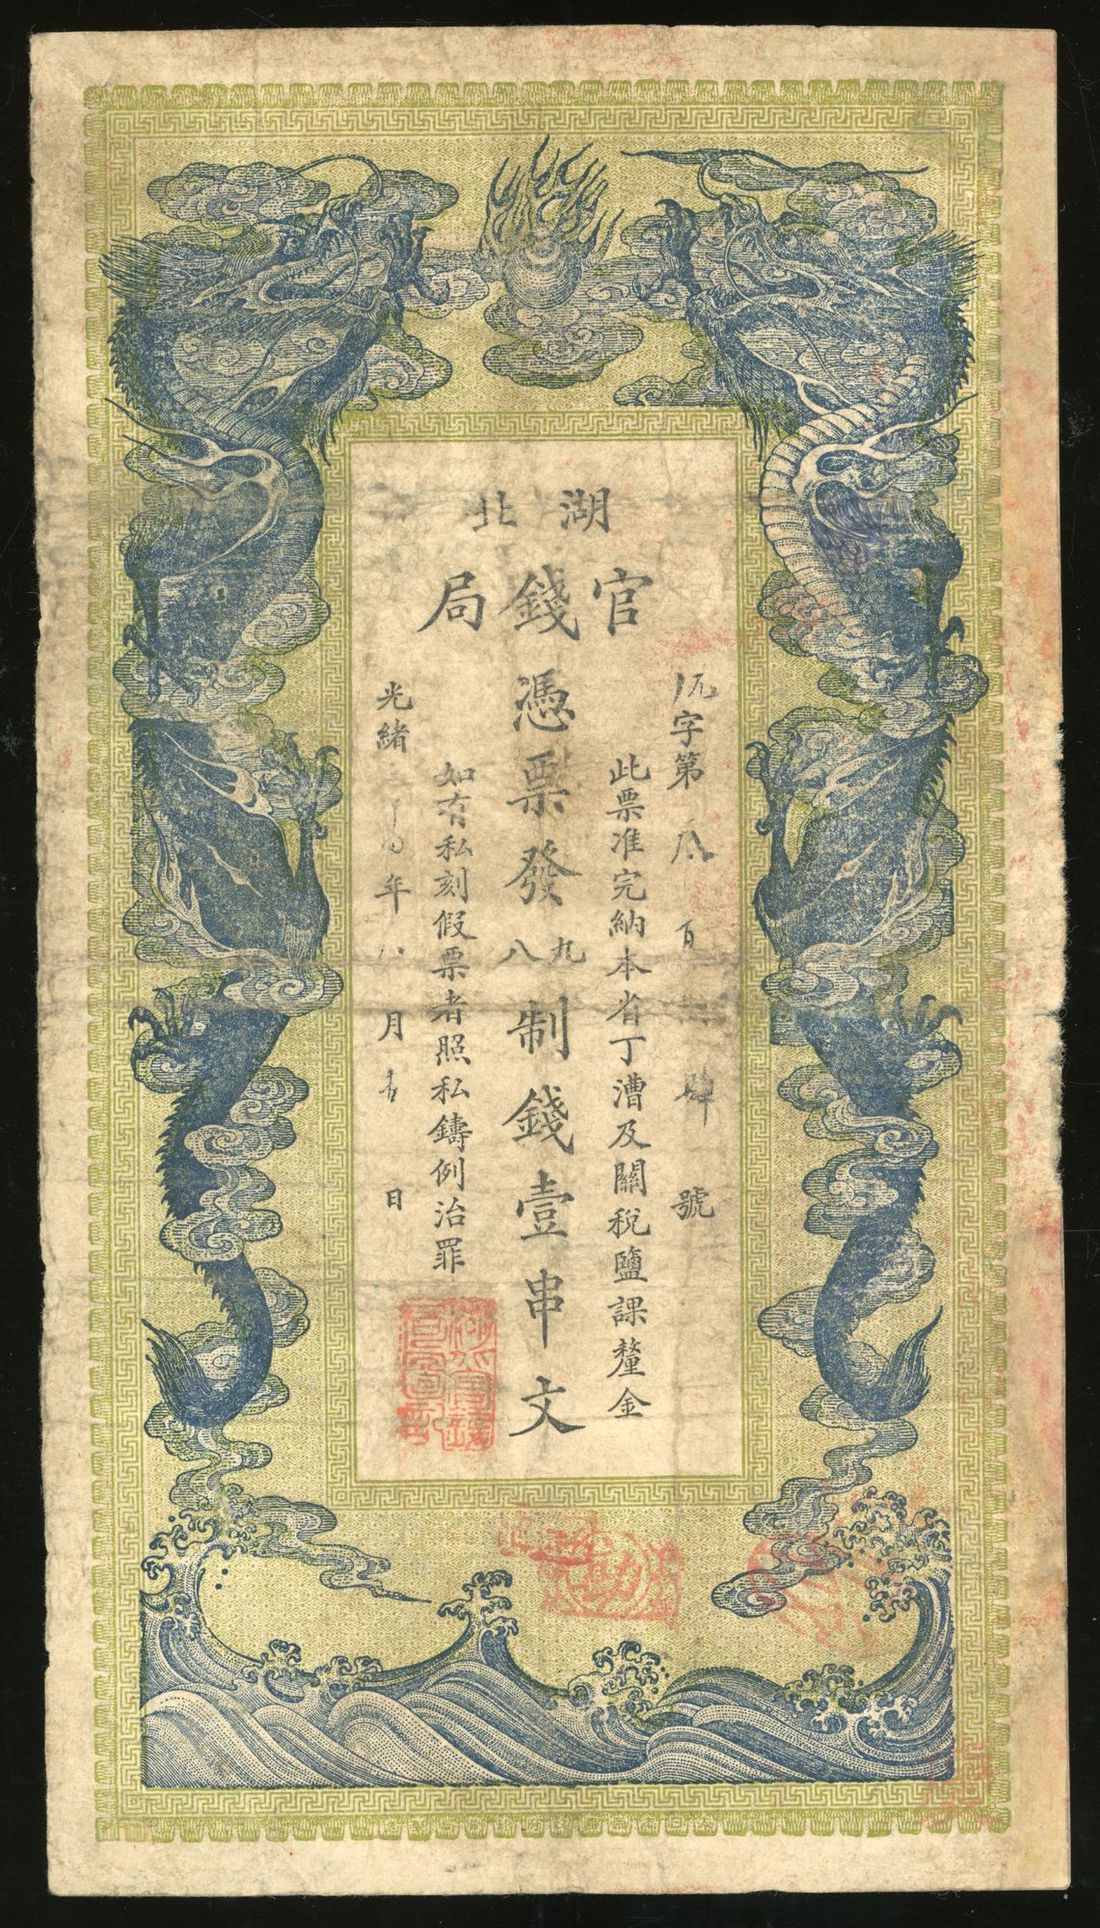 湖北
官錢局
字第 百 號
此票准完納本省丁漕及關稅鹽課釐金
憑票發九八制錢壹串文
如有私刻假票者照私鑄例治罪
光緒 年八月 日